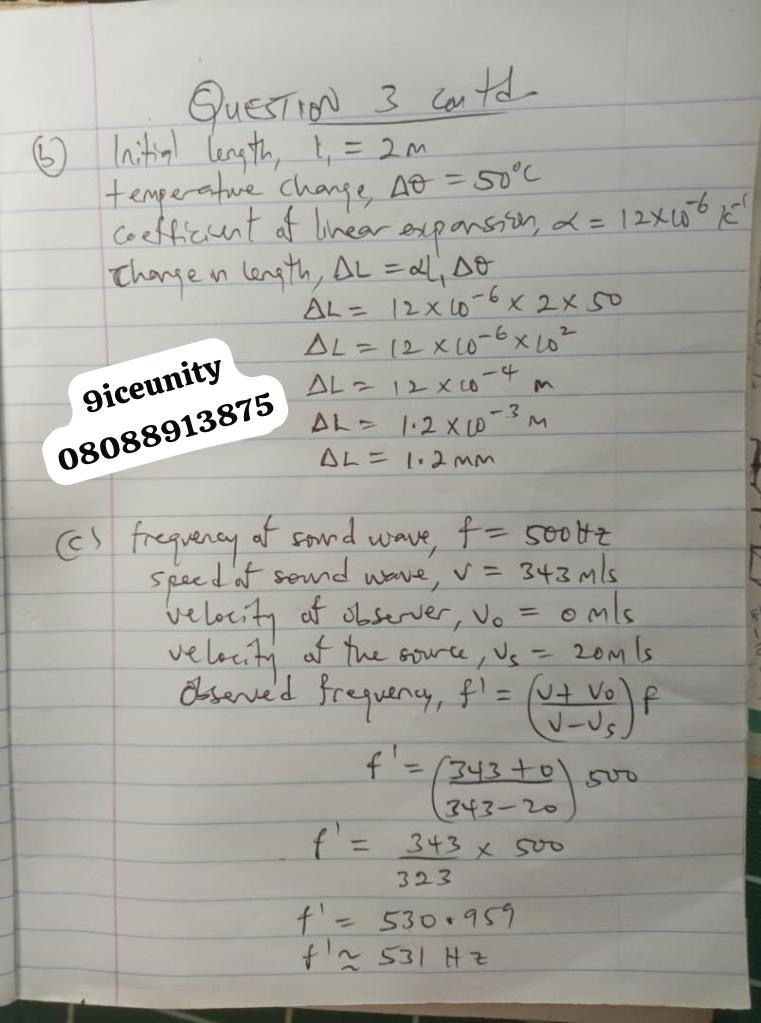 QUESTION 3 contd
(b) Initial length, l₁ = 2m
temperature change, Δθ = 50°C
coefficient of linear expansion, α = 12×10⁻⁶ K⁻¹
Change in length, ΔL = αl₁Δθ
ΔL = 12×10⁻⁶ × 2 × 50
ΔL = 12 ×10⁻⁶×10²
ΔL = 12 ×10⁻⁴ m
ΔL = 1.2×10⁻³ m
ΔL = 1.2 mm
9iceunity
08088913875
(c) frequency of sound wave, f = 500Hz
speed of sound wave, v = 343 m/s
velocity of observer, v₀ = 0 m/s
velocity of the source, vₛ = 20m/s
Observed frequency, f' = (v + v₀ / v - vₛ) f
f' = (343 + 0 / 343 - 20) 500
f' = 343 / 323 × 500
f' = 530.959
f' ≈ 531 Hz